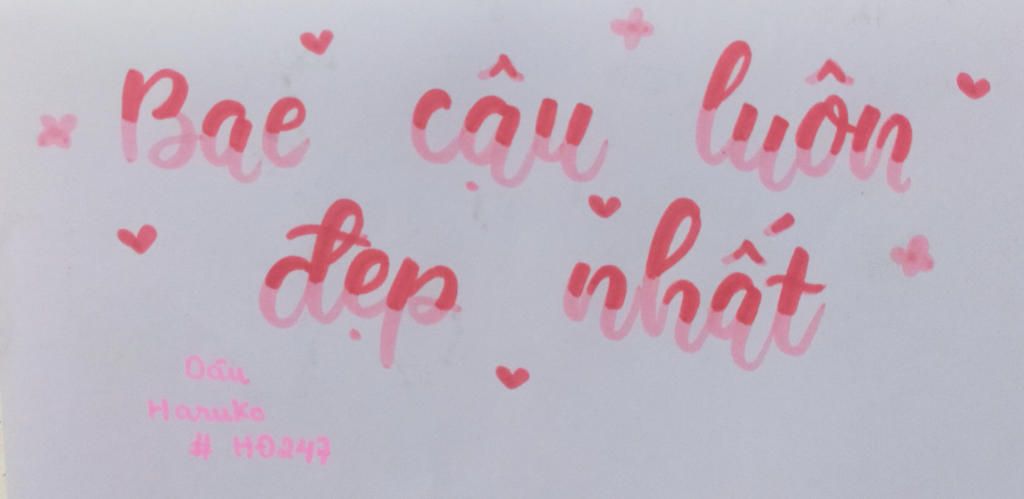 Bae cậu luôn
đẹp nhất
Dâu
Haruko
# HD247